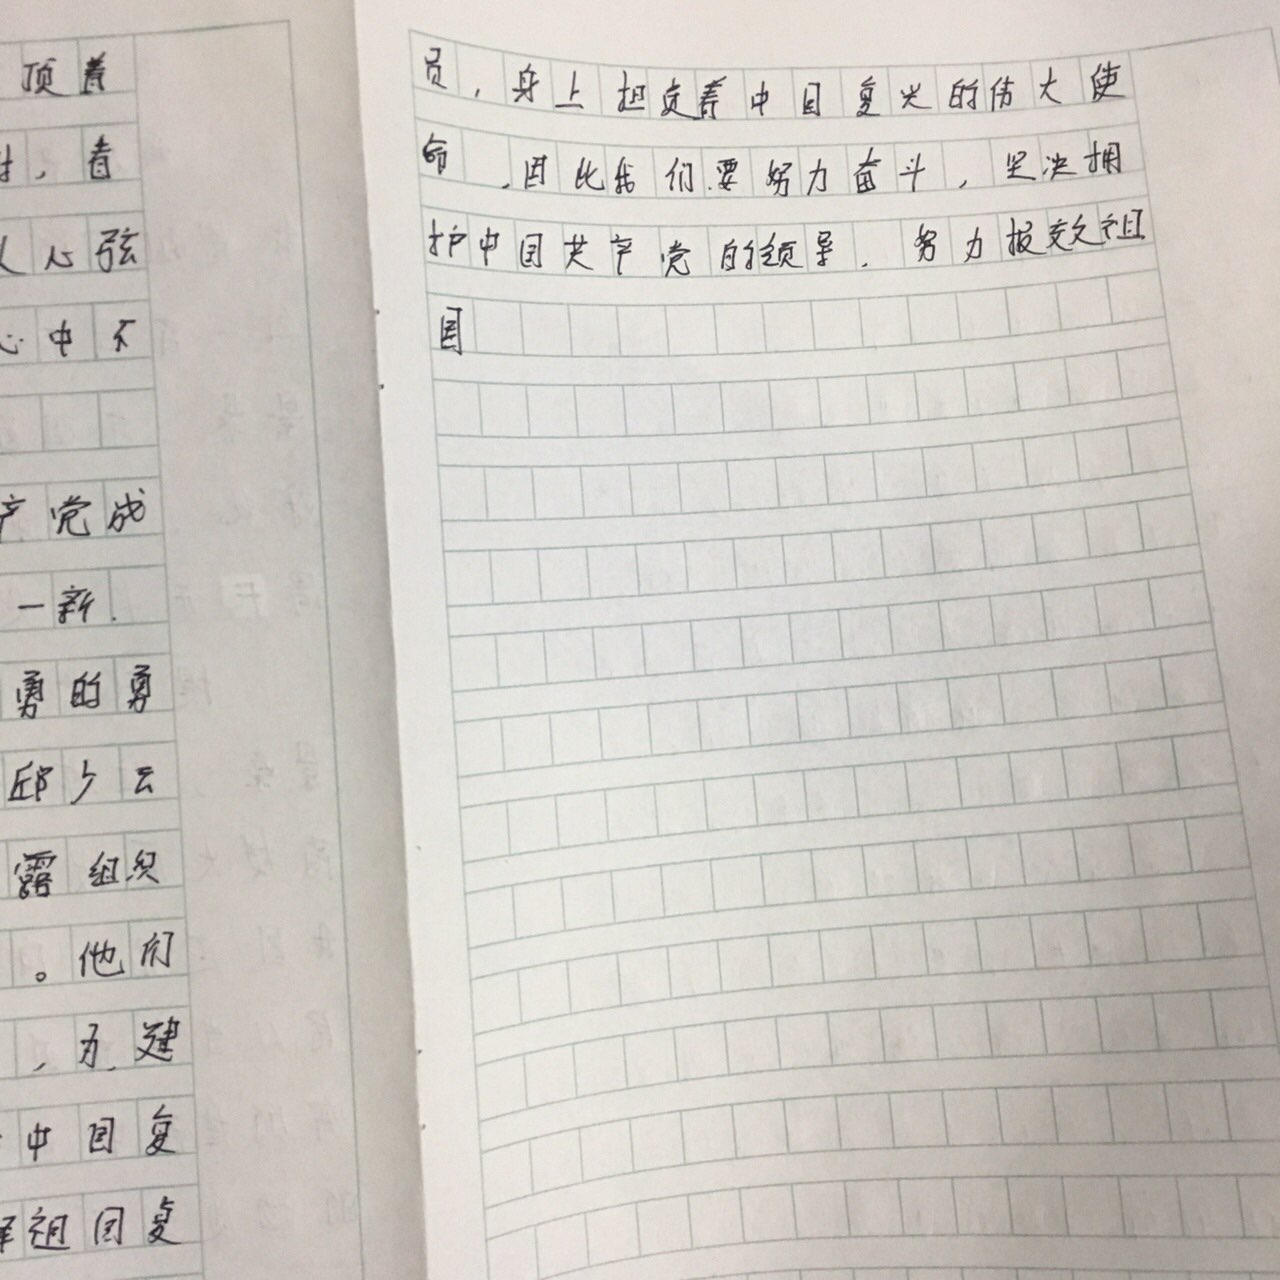 顶着
，看
人心弦
心中不
产党成
一新.
勇的勇
邱少云
露组织
。他们
，为建
中国复
祖国复
员，身上担负着中国复兴的伟大使
命，因此我们要努力奋斗，坚决拥
护中国共产党的领导.努力报效祖
国